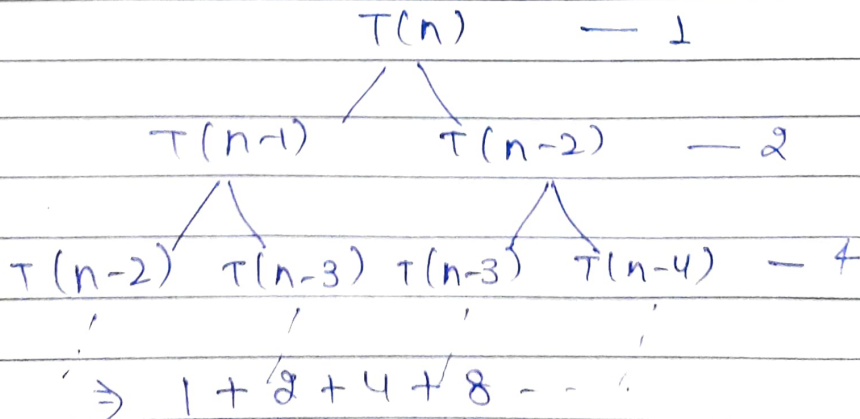 T(n) — 1
T(n-1) T(n-2) — 2
T(n-2) T(n-3) T(n-3) T(n-4) — 4
⇒ 1 + 2 + 4 + 8 - - .